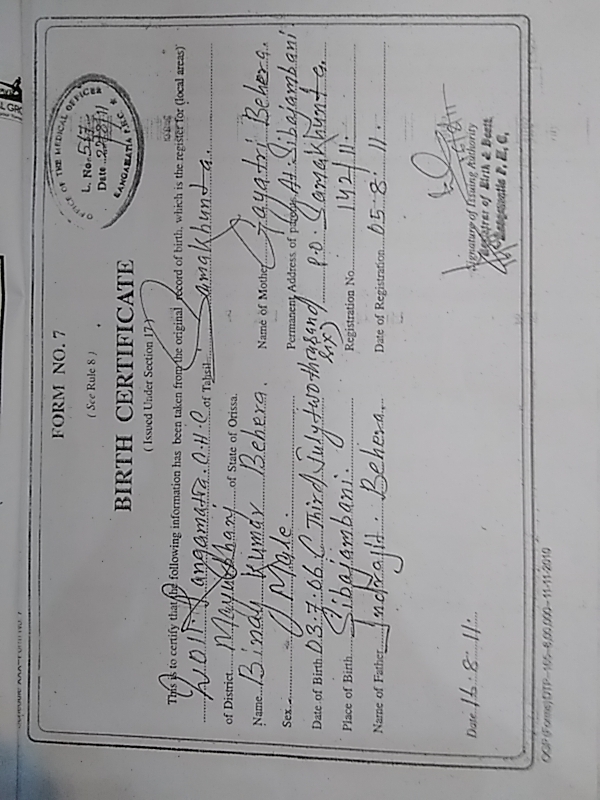 FORM NO. 7
( See Rule 8 )
BIRTH CERTIFICATE
( Issued Under Section 17 )
OFFICE OF THE MEDICAL OFFICER
L. No. 517
Date
RANGAMATIA P.H.C.
This is to certify that the following information has been taken from the original record of birth, which is the register for (local areas)
2011 Rangamatia P.H.C of Tahsil Samakhunta.
of District Mayurbhanj of State of Orissa.
Name Bindu Kumar Behera.
Name of Mother Gayatri Behera.
Sex Male.
Permanent Address of parents At. Sibajambani
Date of Birth 03.7.06 ( Third July two thousand six )
P.O. Samakhunta.
Place of Birth Sibajambani.
Registration No. 142/11.
Name of Father Indrajit Behera.
Date of Registration 05.8.11.
Signature of Issuing Authority
Registrar of Birth & Death
Rangamatia P. H. C,
Date 16.8.11.
11-11-2010